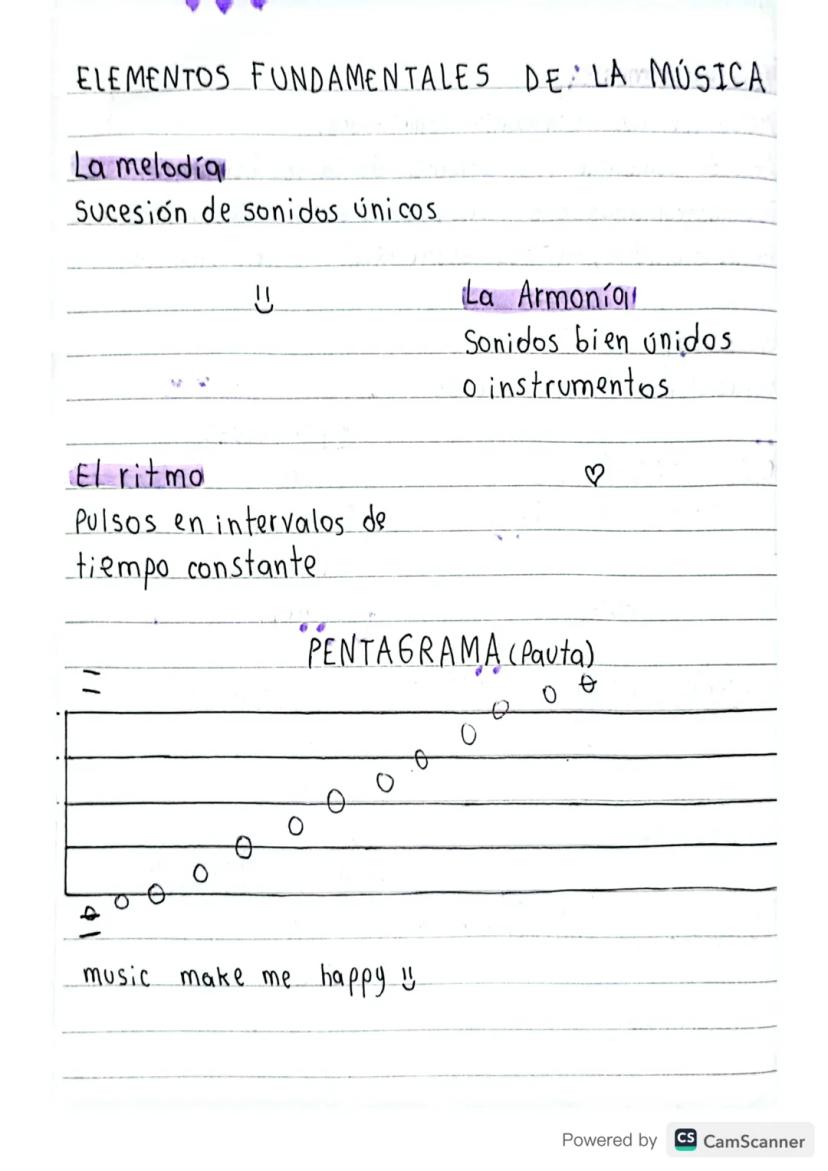 ELEMENTOS FUNDAMENTALES DE LA MÚSICA
La melodía
Sucesión de sonidos únicos
La Armonía
Sonidos bien únidos
o instrumentos
El ritmo
Pulsos en intervalos de
tiempo constante
PENTAGRAMA (Pauta)
music make me happy
Powered by CS CamScanner